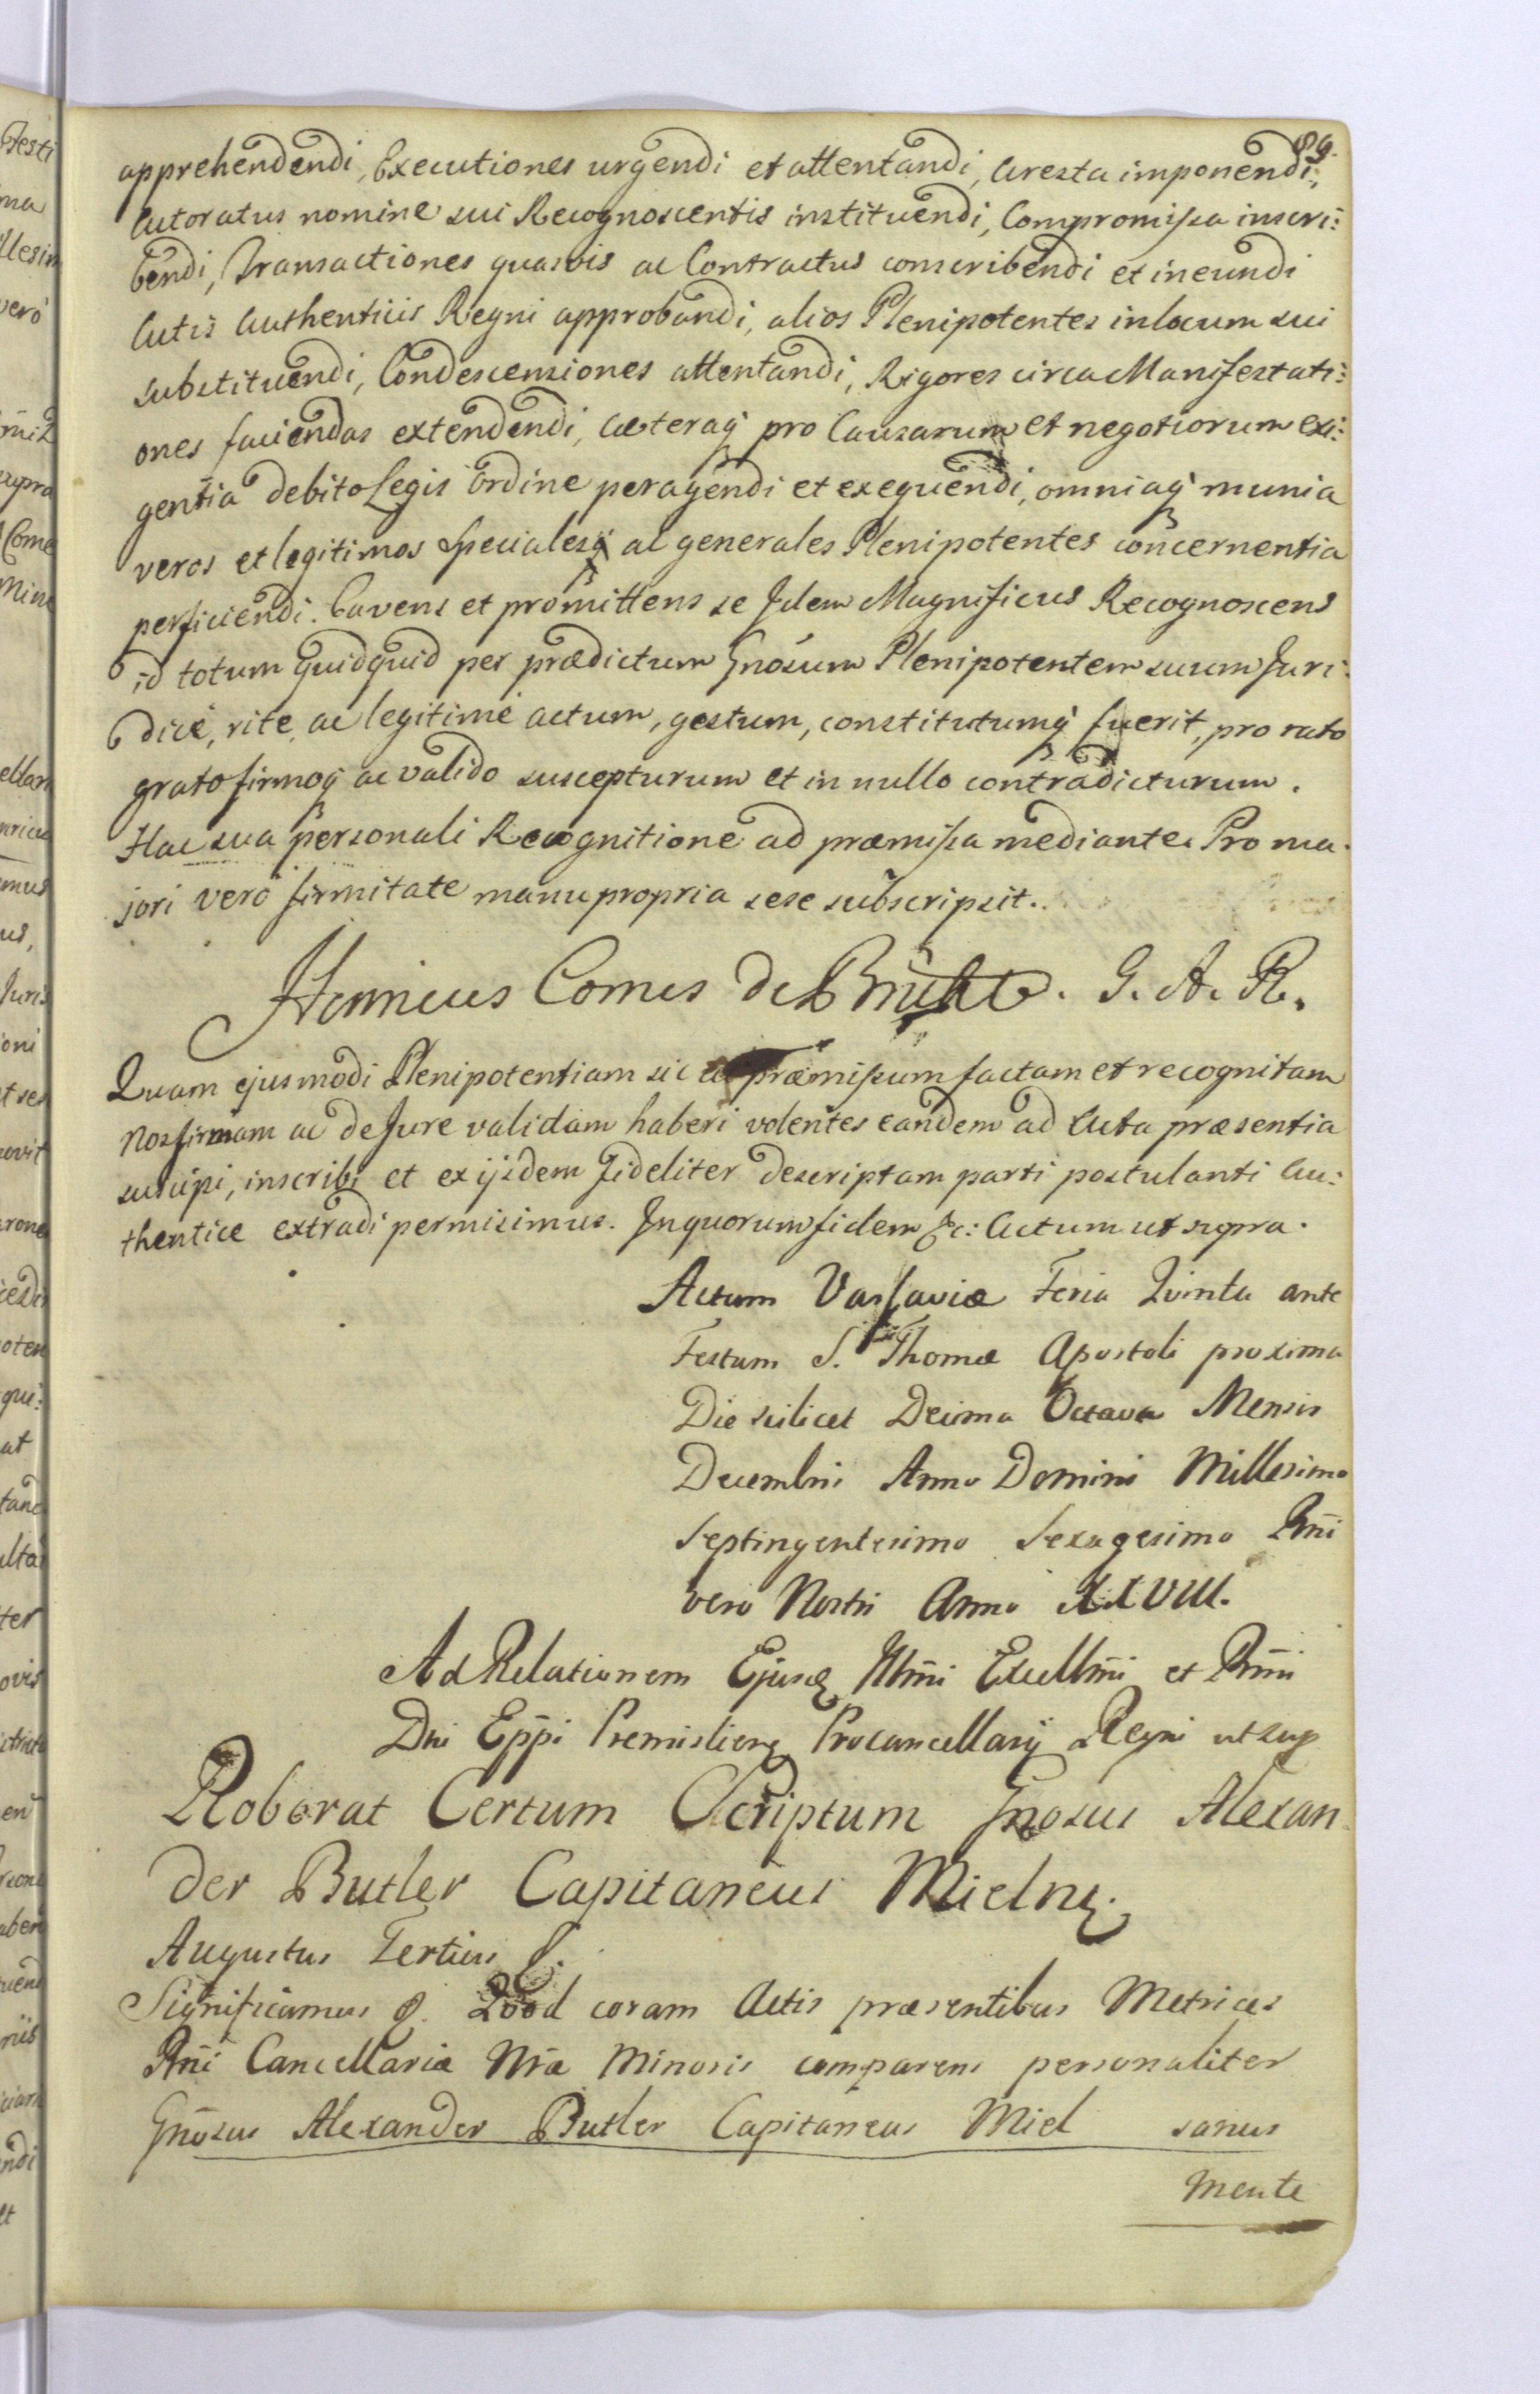 89.
apprehendendi, Executiones urgendi et attentandi, Aresta imponendi,
Actoratus nomine sui Recognoscentis instituendi, Compromissa inscri:
bendi, Transactiones quasvis ac Contractus conscribendi et ineundi
Actis Authenticis Regni approbandi, alios Plenipotentes in locum sui
substituendi, Condescensiones attentandi, Rigores circa Manifestati:
ones faciendas extendendi, Caeteraq pro Causarum et negotiorum exi:
gentia debito Legis ordine peragendi et exequendi, omniaq munia
veros et legitimos Specialesq ac generales Plenipotentes concernentia
perficiendi. Cavens et promittens se Idem Magnificus Recognoscens
id totum quidquid per praedictum Gnosum Plenipotentem suum Juri:
dice, rite, ac legitime actum, gestum, constitutumq fuerit, pro rato
grato firmoq ac valido suscepturum et in nullo contradicturum.
Hac sua personali Recognitione ad praemissa mediante. Pro ma.
jori vero firmitate manu propria sese subscripsit.
Henricus Comes de Brühl. G. A. R.
Quam ejusmodi Plenipotentiam sic praemissum factam et recognitam
Nos firmam ac de Jure validam haberi volentes eandem ad Acta praesentia
suscipi, inscribi et ex ijsdem fideliter descriptam parti postulanti Au:
thentice extradi permisimus. In quorum fidem &c: Actum ut supra.
Actum Varsaviae Feria Quinta ante
Festum S. Thomae Apostoli proxima
Die scilicet Decima Octava Mensis
Decembris Anno Domini Millesimo
Septingentesimo Sexagesimo Rñi
vero Nostri Anno XXVIII.
Ad Relationem Ejusd Illmi Excellmi et Rmi
Dni Eppi Premislien Procancellarij Regni ut sup
Roborat Certum Scriptum Gnosus Alexan
der Butler Capitaneus Mieln.
Augustus Tertius &.
Significamus &. Quod coram Actis praesentibus Metrices
Rñi Cancellariae Nrae Minoris comparens personaliter
Gnosus Alexander Butler Capitaneus Miel sanus
mente